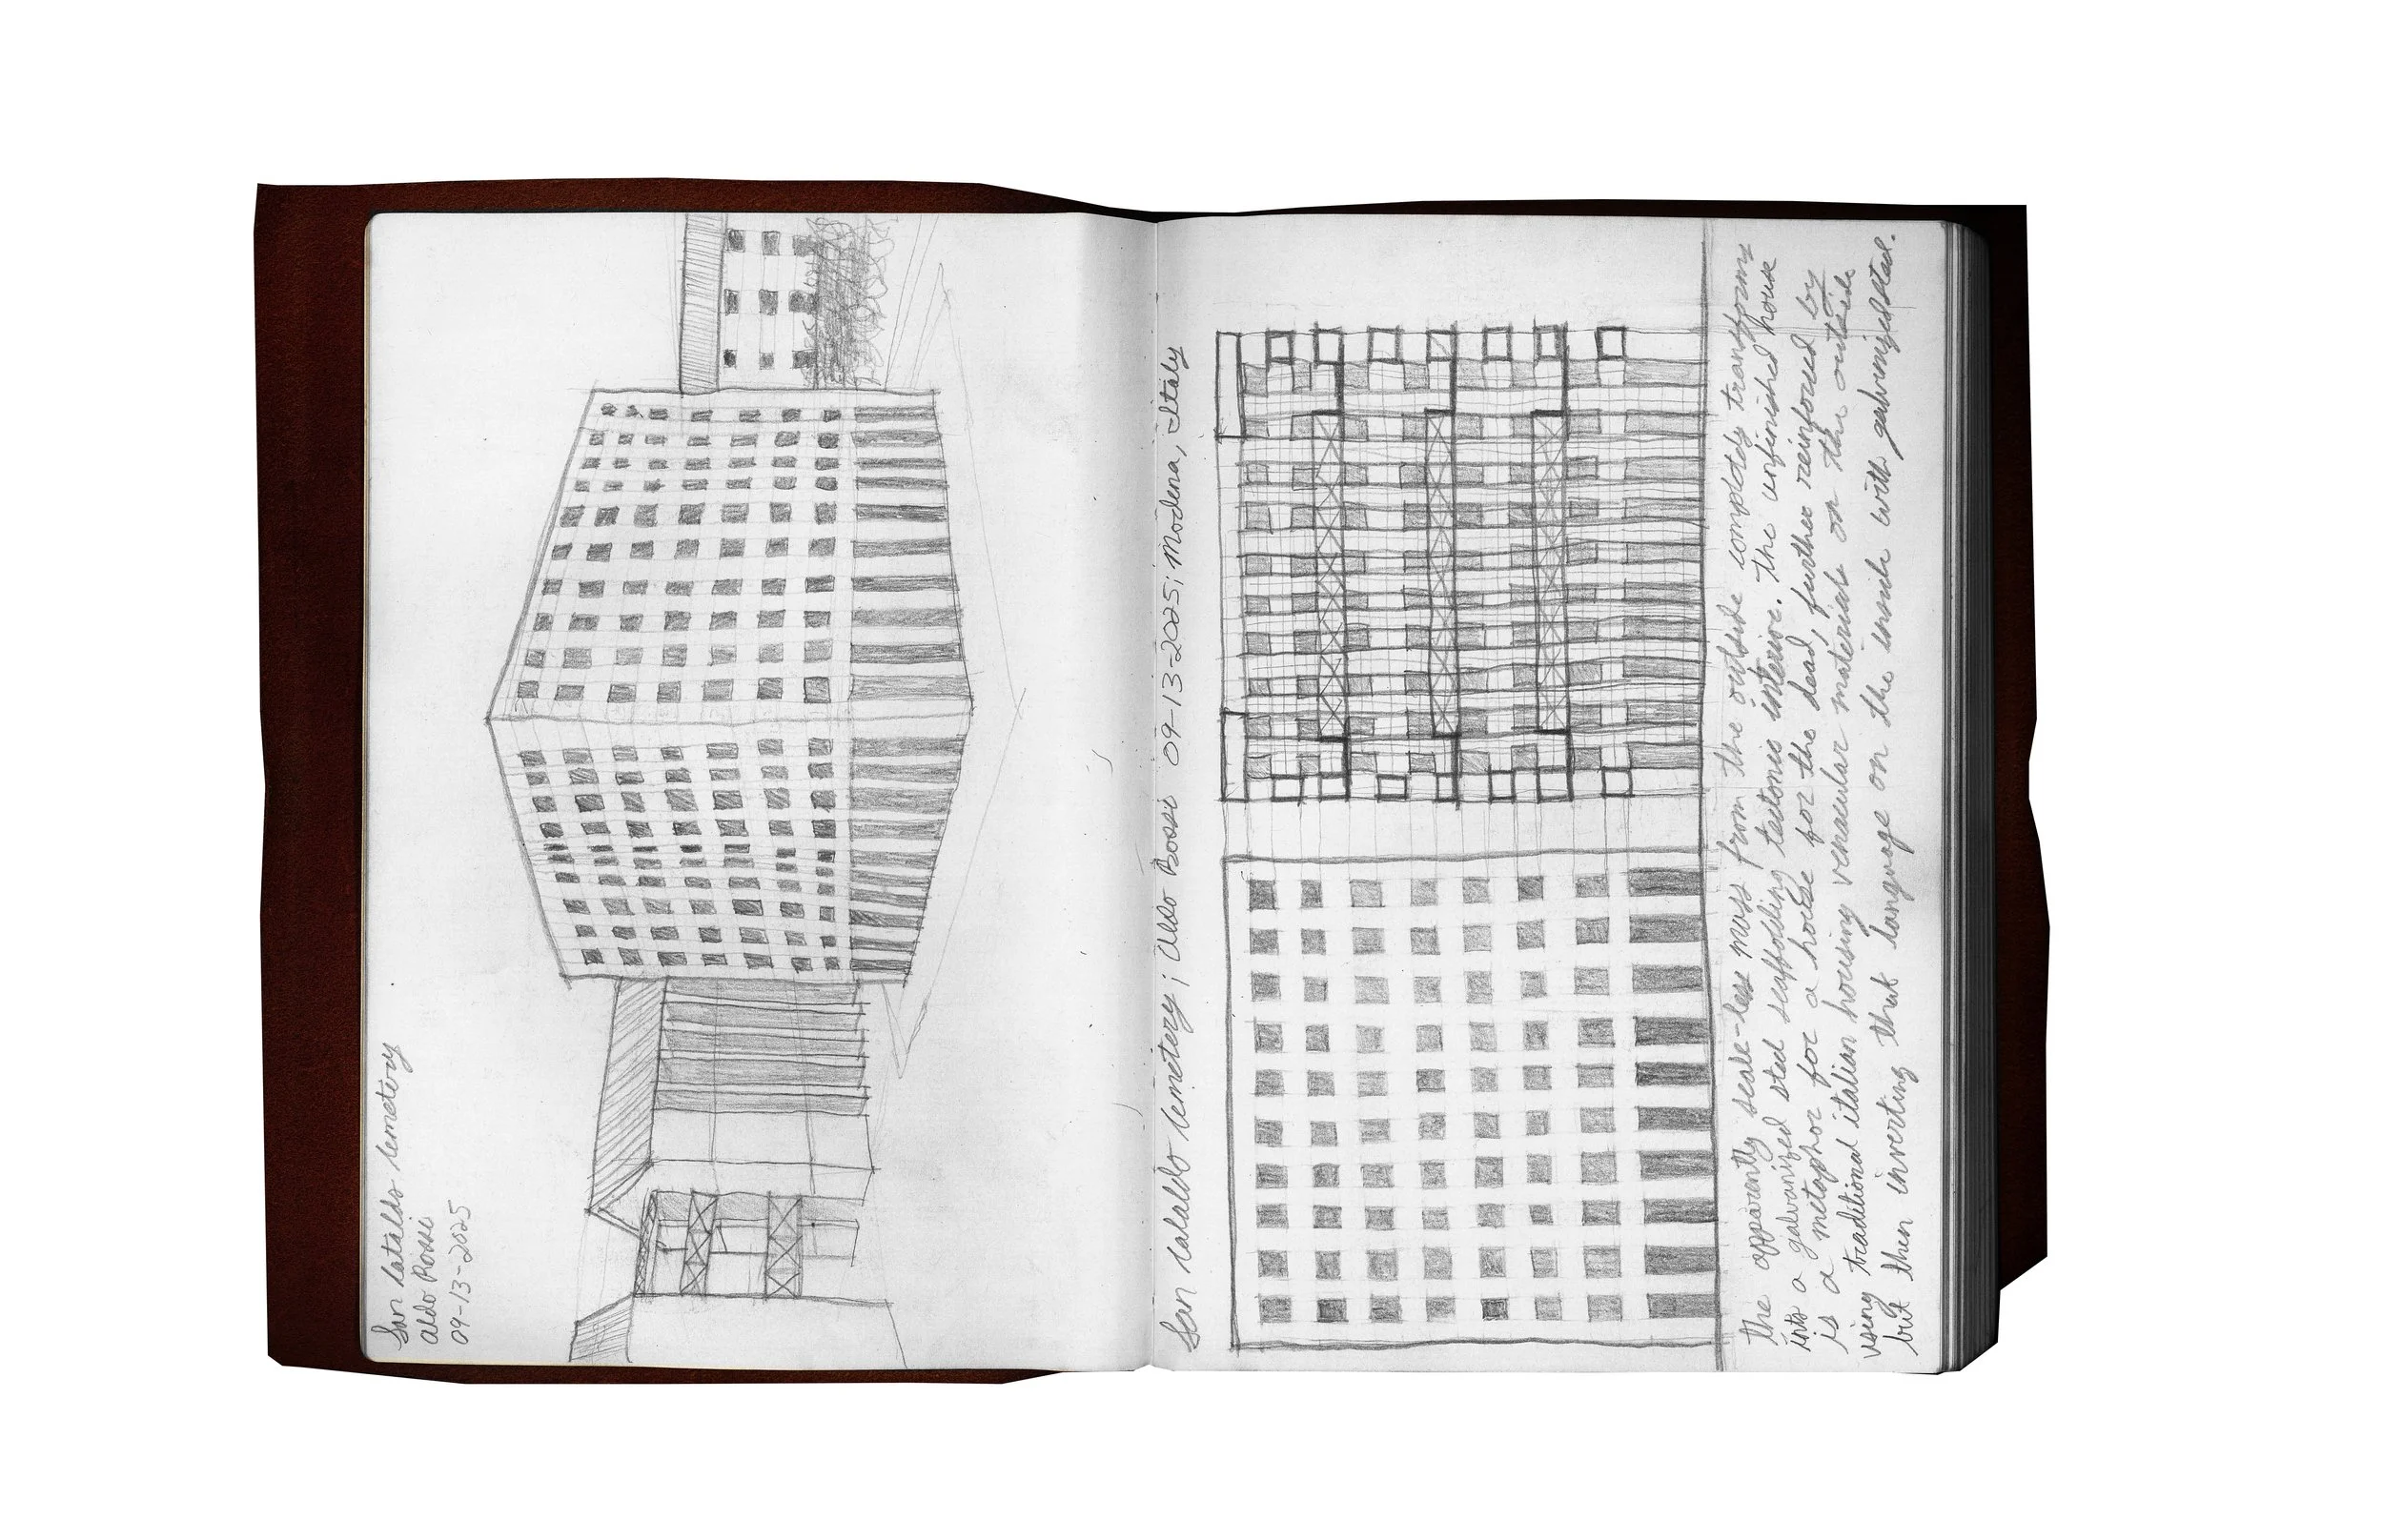 San Cataldo Cemetery
Aldo Rossi
09-13-2025
San Cataldo Cemetery; Aldo Rossi 09-13-2025; Modena, Italy
The apparently scale-less mass from the outside completely transforms
into a galvanized steel scaffolding tectonic interior. The unfinished house
is a metaphor for a house for the dead, further reinforced by
using traditional italian housing vernacular materials on the outside
but then inverting that language on the inside with galvanized steel.